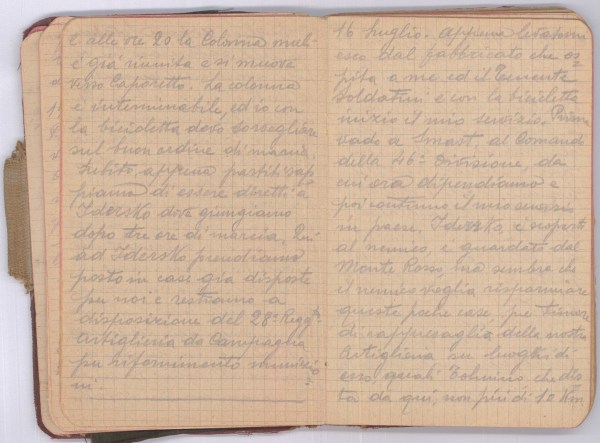 e alle ore 20 la Colonna muli
è già riunita e si muove
verso Caporetto. La colonna
è interminabile, ed io con
la bicicletta devo sorvegliare
sul buon ordine di marcia
Subito appena partiti sap
piamo di essere diretti a
Idersko dove giungiamo
dopo tre ore di marcia. Qui
ad Idersko prendiamo
posto in case già disposte
per noi e restiamo a
disposizione del 28° Regg.
Artiglieria da Campagna
per rifornimento munizio
ni.
16 Luglio. Appena levatomi
esco dal fabbricato che os
pita a me ed il Tenente
Soldatini e con la bicicletta
inizio il mio servizio. Prima
vado a Smast, al Comando
della 46a Divisione, da
cui ora dipendiamo e
poi continuo il mio servizio
in paese. Idersko, è esposto
al nemico, è guardato dal
Monte Rosso, ma sembra che
il nemico voglia risparmiare
queste poche case per timore
di rappresaglia della nostra
Artiglieria su luoghi di
essi quali Tolmino che dis
ta da qui, non più di 10 Km